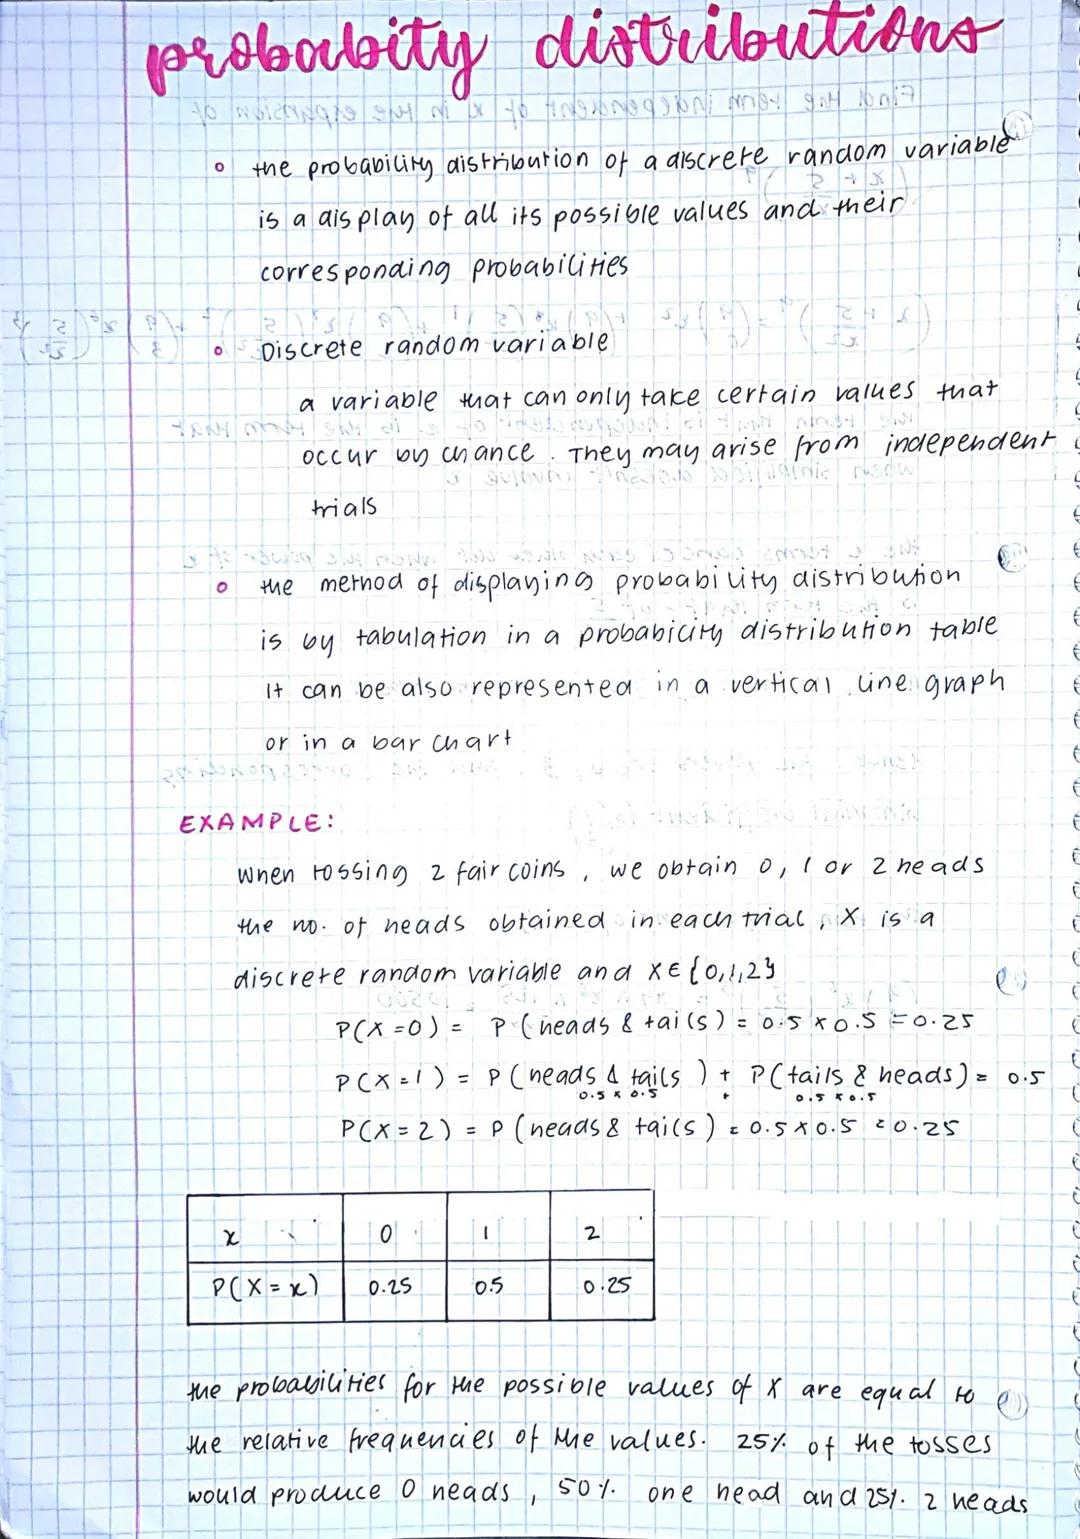 probabity distributions
the probability distribution of a discrete random variable
is a display of all its possible values and their
corresponding probabilities
Discrete random variable
a variable that can only take certain values that
occur by chance. They may arise from independent
trials
the method of displaying probability distribution
is by tabulation in a probability distribution table
It can be also represented in a vertical line graph
or in a bar chart
EXAMPLE:
when tossing 2 fair coins, we obtain 0, 1 or 2 heads
the no. of heads obtained in each trial, X is a
discrete random variable and X∈{0,1,2}
P(X=0) = P(heads & tails) = 0.5 × 0.5 = 0.25
P(X=1) = P(heads & tails) + P(tails & heads) = 0.5
0.5 × 0.5 + 0.5 × 0.5
P(X=2) = P(heads & tails) = 0.5 × 0.5 = 0.25
x 0 1 2
P(X=x) 0.25 0.5 0.25
the probabilities for the possible values of X are equal to
the relative frequencies of the values. 25% of the tosses
would produce 0 heads, 50% one head and 25% 2 heads